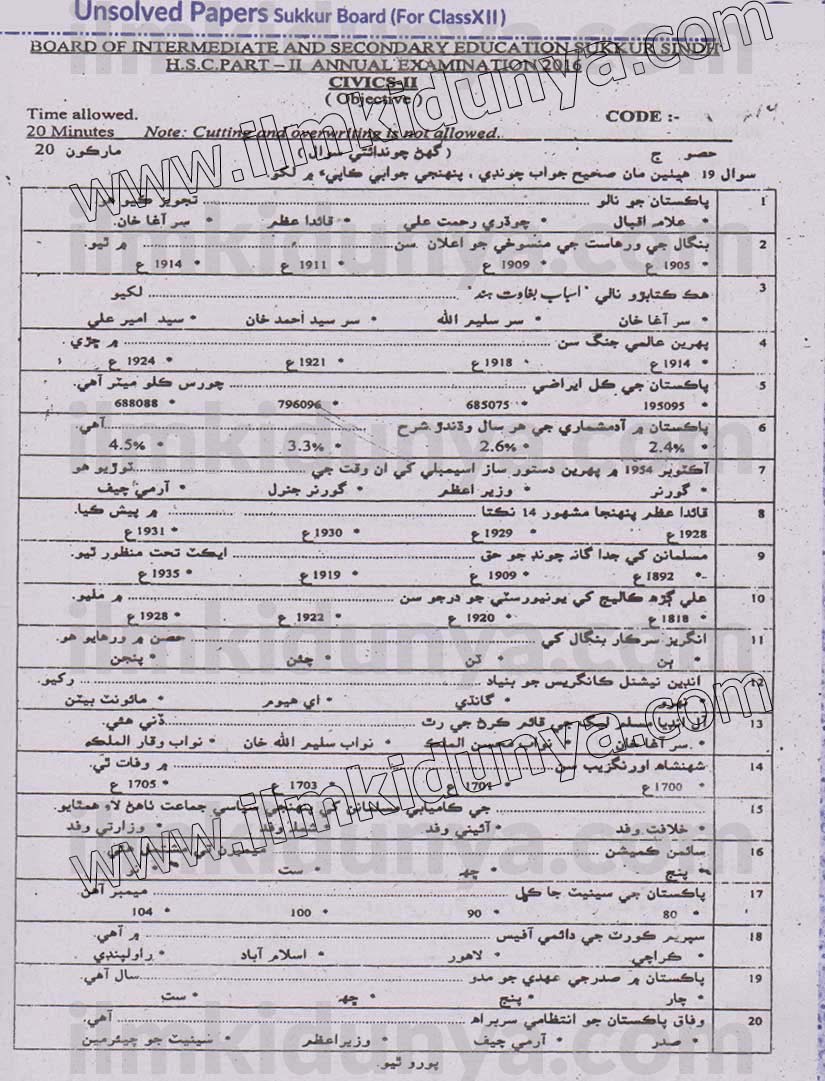 Unsolved Papers Sukkur Board (For ClassXII)
BOARD OF INTERMEDIATE AND SECONDARY EDUCATION SUKKUR SINDH
H.S.C.PART – II ANNUAL EXAMINATION 2016
CIVICS-II
( Objective )
Time allowed. CODE :-
20 Minutes Note: Cutting and overwriting is not allowed.
حصو ج ( گهڻ چونڊائتي سوال ) مارڪون 20
سوال 19 هيٺين مان صحيح جواب چونڊي ، پنهنجي جوابي ڪاپيءَ ۾ لکو
1 پاڪستان جو نالو ........ تجويز ڪيو هو
* علامه اقبال * چوڌري رحمت علي * قائدا عظم * سر آغا خان.
2 بنگال جي ورهاست جي منسوخي جو اعلان سن ........ ۾ ٿيو.
* 1905 ع * 1909 ع * 1911 ع * 1914 ع
3 هڪ ڪتابڙو نالي "اسباب بغاوت هند" ........ لکيو
* سر آغا خان * سر سليم الله * سر سيد احمد خان * سيد امير علي
4 پهرين عالمي جنگ سن ........ ۾ ڇڙي.
* 1914 ع * 1918 ع * 1921 ع * 1924 ع
5 پاڪستان جي ڪل ايراضي ........ چورس ڪلو ميٽر آهي.
195095 * 685075 * 796096 * 688088
6 پاڪستان ۾ آدمشماري جي هر سال وڌندڙ شرح ........ آهي.
* 2.4% * 2.6% * 3.3% * 4.5%
7 آڪٽوبر 1954 ۾ پهرين دستور ساز اسيمبلي کي ان وقت جي ........ ٽوڙيو هو
* گورنر * وزير اعظم * گورنر جنرل * آرمي چيف
8 قائدا عظم پنهنجا مشهور 14 نڪتا ........ ۾ پيش ڪيا.
1928 ع * 1929 ع * 1930 ع * 1931 ع
9 مسلمانن کي جدا گانه چونڊ جو حق ........ ايڪٽ تحت منظور ٿيو.
* 1892 ع * 1909 ع * 1919 ع * 1935 ع
10 علي ڳڙهه ڪاليج کي يونيورسٽي جو درجو سن ........ ۾ مليو.
* 1818 ع * 1920 ع * 1922 ع * 1928 ع
11 انگريز سرڪار بنگال کي ........ حصن ۾ ورهايو هو.
* ٻن * ٽن * چئن * پنجن
12 انڊين نيشنل ڪانگريس جو بنياد ........ رکيو.
* نهرو * گانڌي * اي هيوم * مائونٽ بيٽن
13 آل انڊيا مسلم ليگ جي قائم ڪرڻ جي رٿ ........ ڏني هئي.
* سر آغا خان * نواب محسن الملڪ * نواب سليم الله خان * نواب وقار الملڪ
14 شهنشاهه اورنگزيب سن ........ ۾ وفات ٿي.
* 1700 ع * 1701 ع * 1703 ع * 1705 ع
15 ........ جي ڪاميابي مسلمانن کي پنهنجي سياسي جماعت ٺاهڻ لاءِ همٿايو.
* خلافت وفد * آئيني وفد * شمله وفد * وزارتي وفد
16 سائمن ڪميشن ........ ميمبرن تي مشتمل هئي
* پنج * ڇهه * ست
17 پاڪستان جي سينيٽ جا ڪل ........ ميمبر آهن
* 80 * 90 * 100 * 104
18 سپريم ڪورٽ جي دائمي آفيس ........ ۾ آهي.
* ڪراچي * لاهور * اسلام آباد * راولپنڊي
19 پاڪستان ۾ صدرجي عهدي جو مدو ........ سال آهي.
* چار * پنج * ڇهه * ست
20 وفاق پاڪستان جو انتظامي سربراهه ........ آهي.
* صدر * آرمي چيف * وزيراعظم * سينيٽ جو چيئرمين
پورو ٿيو.
www.ilmkidunya.com
www.ilmkidunya.com